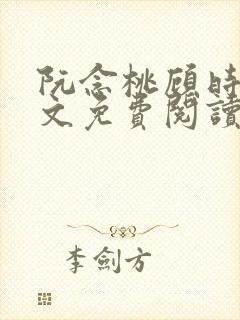 阮念桃顾时
文免費閱讀
李劍方